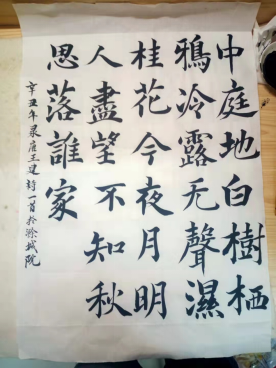 中庭地白樹栖
鴉冷露无聲濕
桂花今夜月明
人盡望不知秋
思落誰家
辛丑年录唐王建詩一首於滁城院